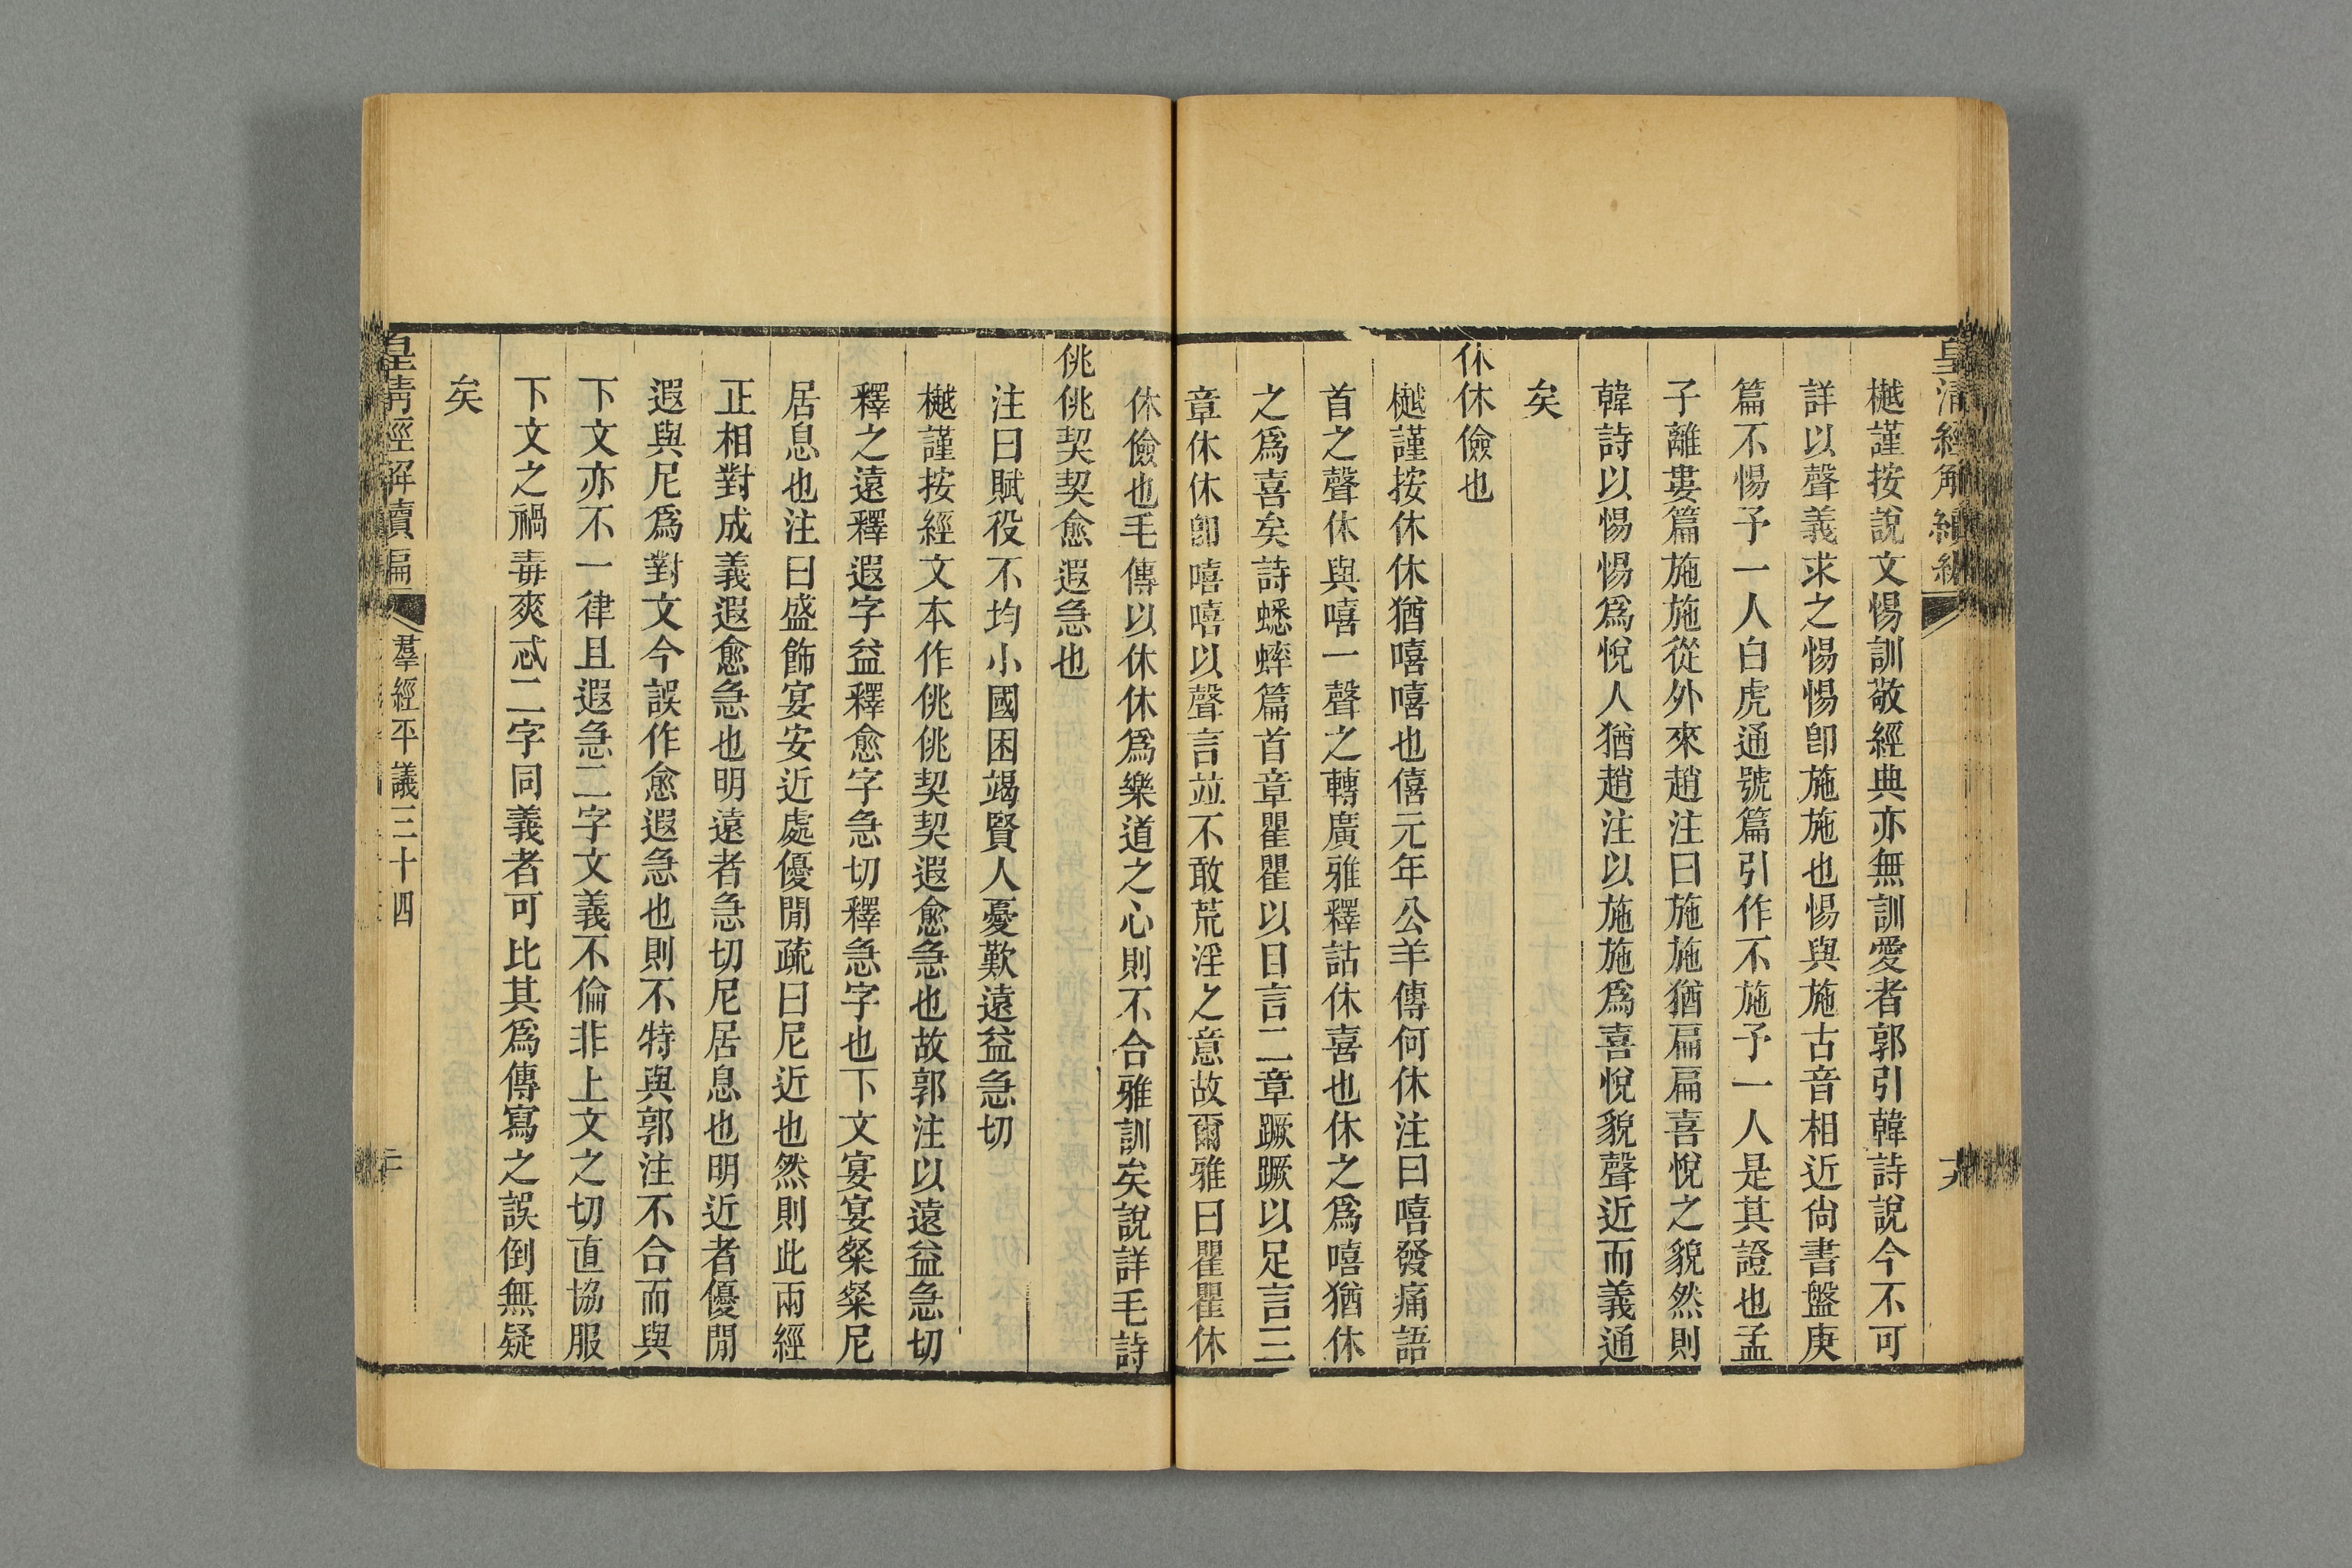 樾謹按說文惕訓敬經典亦無訓愛者郭引韓詩說今不可
詳以聲義求之惕惕卽施施也惕與施古音相近尙書盤庚
篇不惕予一人白虎通號篇引作不施予一人是其證也孟
子離婁篇施施從外來趙注曰施施猶扁扁喜悅之貌然則
韓詩以惕惕爲悅人猶趙注以施施爲喜悅貌聲近而義通
矣
休休儉也
樾謹按休休猶嘻嘻也僖元年公羊傳何休注曰嘻發痛語
首之聲休與嘻一聲之轉廣雅釋詁休喜也休之爲嘻猶休
之爲喜矣詩蟋蟀篇首章瞿瞿以目言二章蹶蹶以足言三
章休休卽嘻嘻以聲言並不敢荒淫之意故爾雅曰瞿瞿休
休儉也毛傳以休休爲樂道之心則不合雅訓矣說詳毛詩
佻佻契契愈遐急也
注曰賦役不均小國困竭賢人憂歎遠益急切
樾謹按經文本作佻佻契契遐愈急也故郭注以遠益急切
釋之遠釋遐字益釋愈字急切釋急字也下文宴宴粲粲尼
居息也注曰盛飾宴安近處優閒疏曰尼近也然則此兩經
正相對成義遐愈急也明遠者急切尼居息也明近者優閒
遐與尼爲對文今誤作愈遐急也則不特與郭注不合而與
下文亦不一律且遐急二字文義不倫非上文之切直協服
下文之禍毒爽忒二字同義者可比其爲傳寫之誤倒無疑
矣
皇淸經解續扁
羣經平議三十四